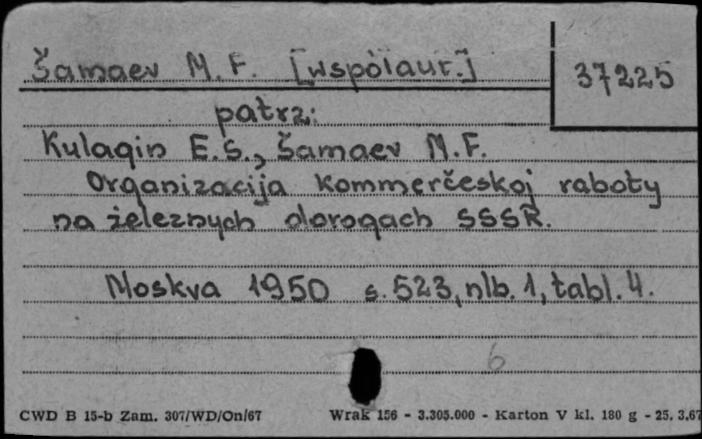 Šamaev M. F. [współaut.]
37225
patrz:
Kulagin E. S., Šamaev M. F.
Organizacija kommerčeskoj raboty
na železnych dorogach SSSR.
Moskva 1950 s. 523, nlb. 1, tabl. 4.
6
CWD B 15-b Zam. 307/WD/On/67 Wrak 156 - 3.305.000 - Karton V kl. 180 g - 25. 3.67